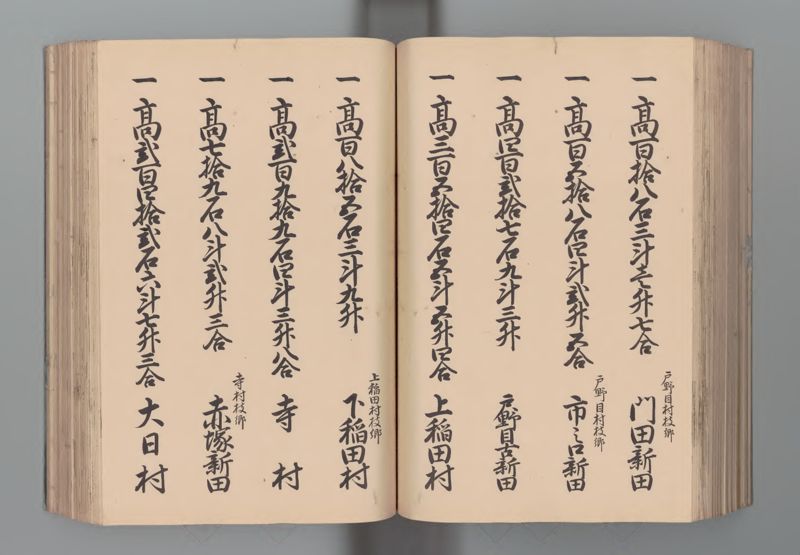 一 高百拾八石三斗壱升七合
戸野目村枝郷
門田新田
一 高百五拾八石四斗弐升五合
戸野目村枝郷
市之口新田
一 高四百弐拾七石九斗三升
戸野目古新田
一 高三百五拾四石五斗五升四合
上稲田村
一 高百八拾五石三斗九升
上稲田村枝郷
下稲田村
一 高弐百九拾九石四斗三升八合
寺村
一 高七拾九石八斗弐升三合
寺村枝郷
赤塚新田
一 高弐百四拾弐石六斗七升三合
大日村